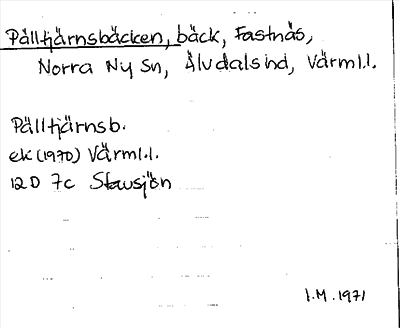 Pålltjärnsbäcken, bäck, Fastnäs,
Norra Ny Sn, Älvdals hd, Värml.l.
Pålltjärnsb.
ek (1970) Värml.l.
12 D 7c Stausjön
I.M. 1971